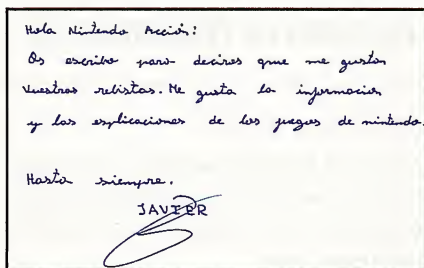 Hola Nintendo Acción:
Os escribo para deciros que me gustan
vuestras rebistas. Me gusta la informacion
y las esplicaciones de los juegos de nintendo.
Hasta siempre.
JAVIER